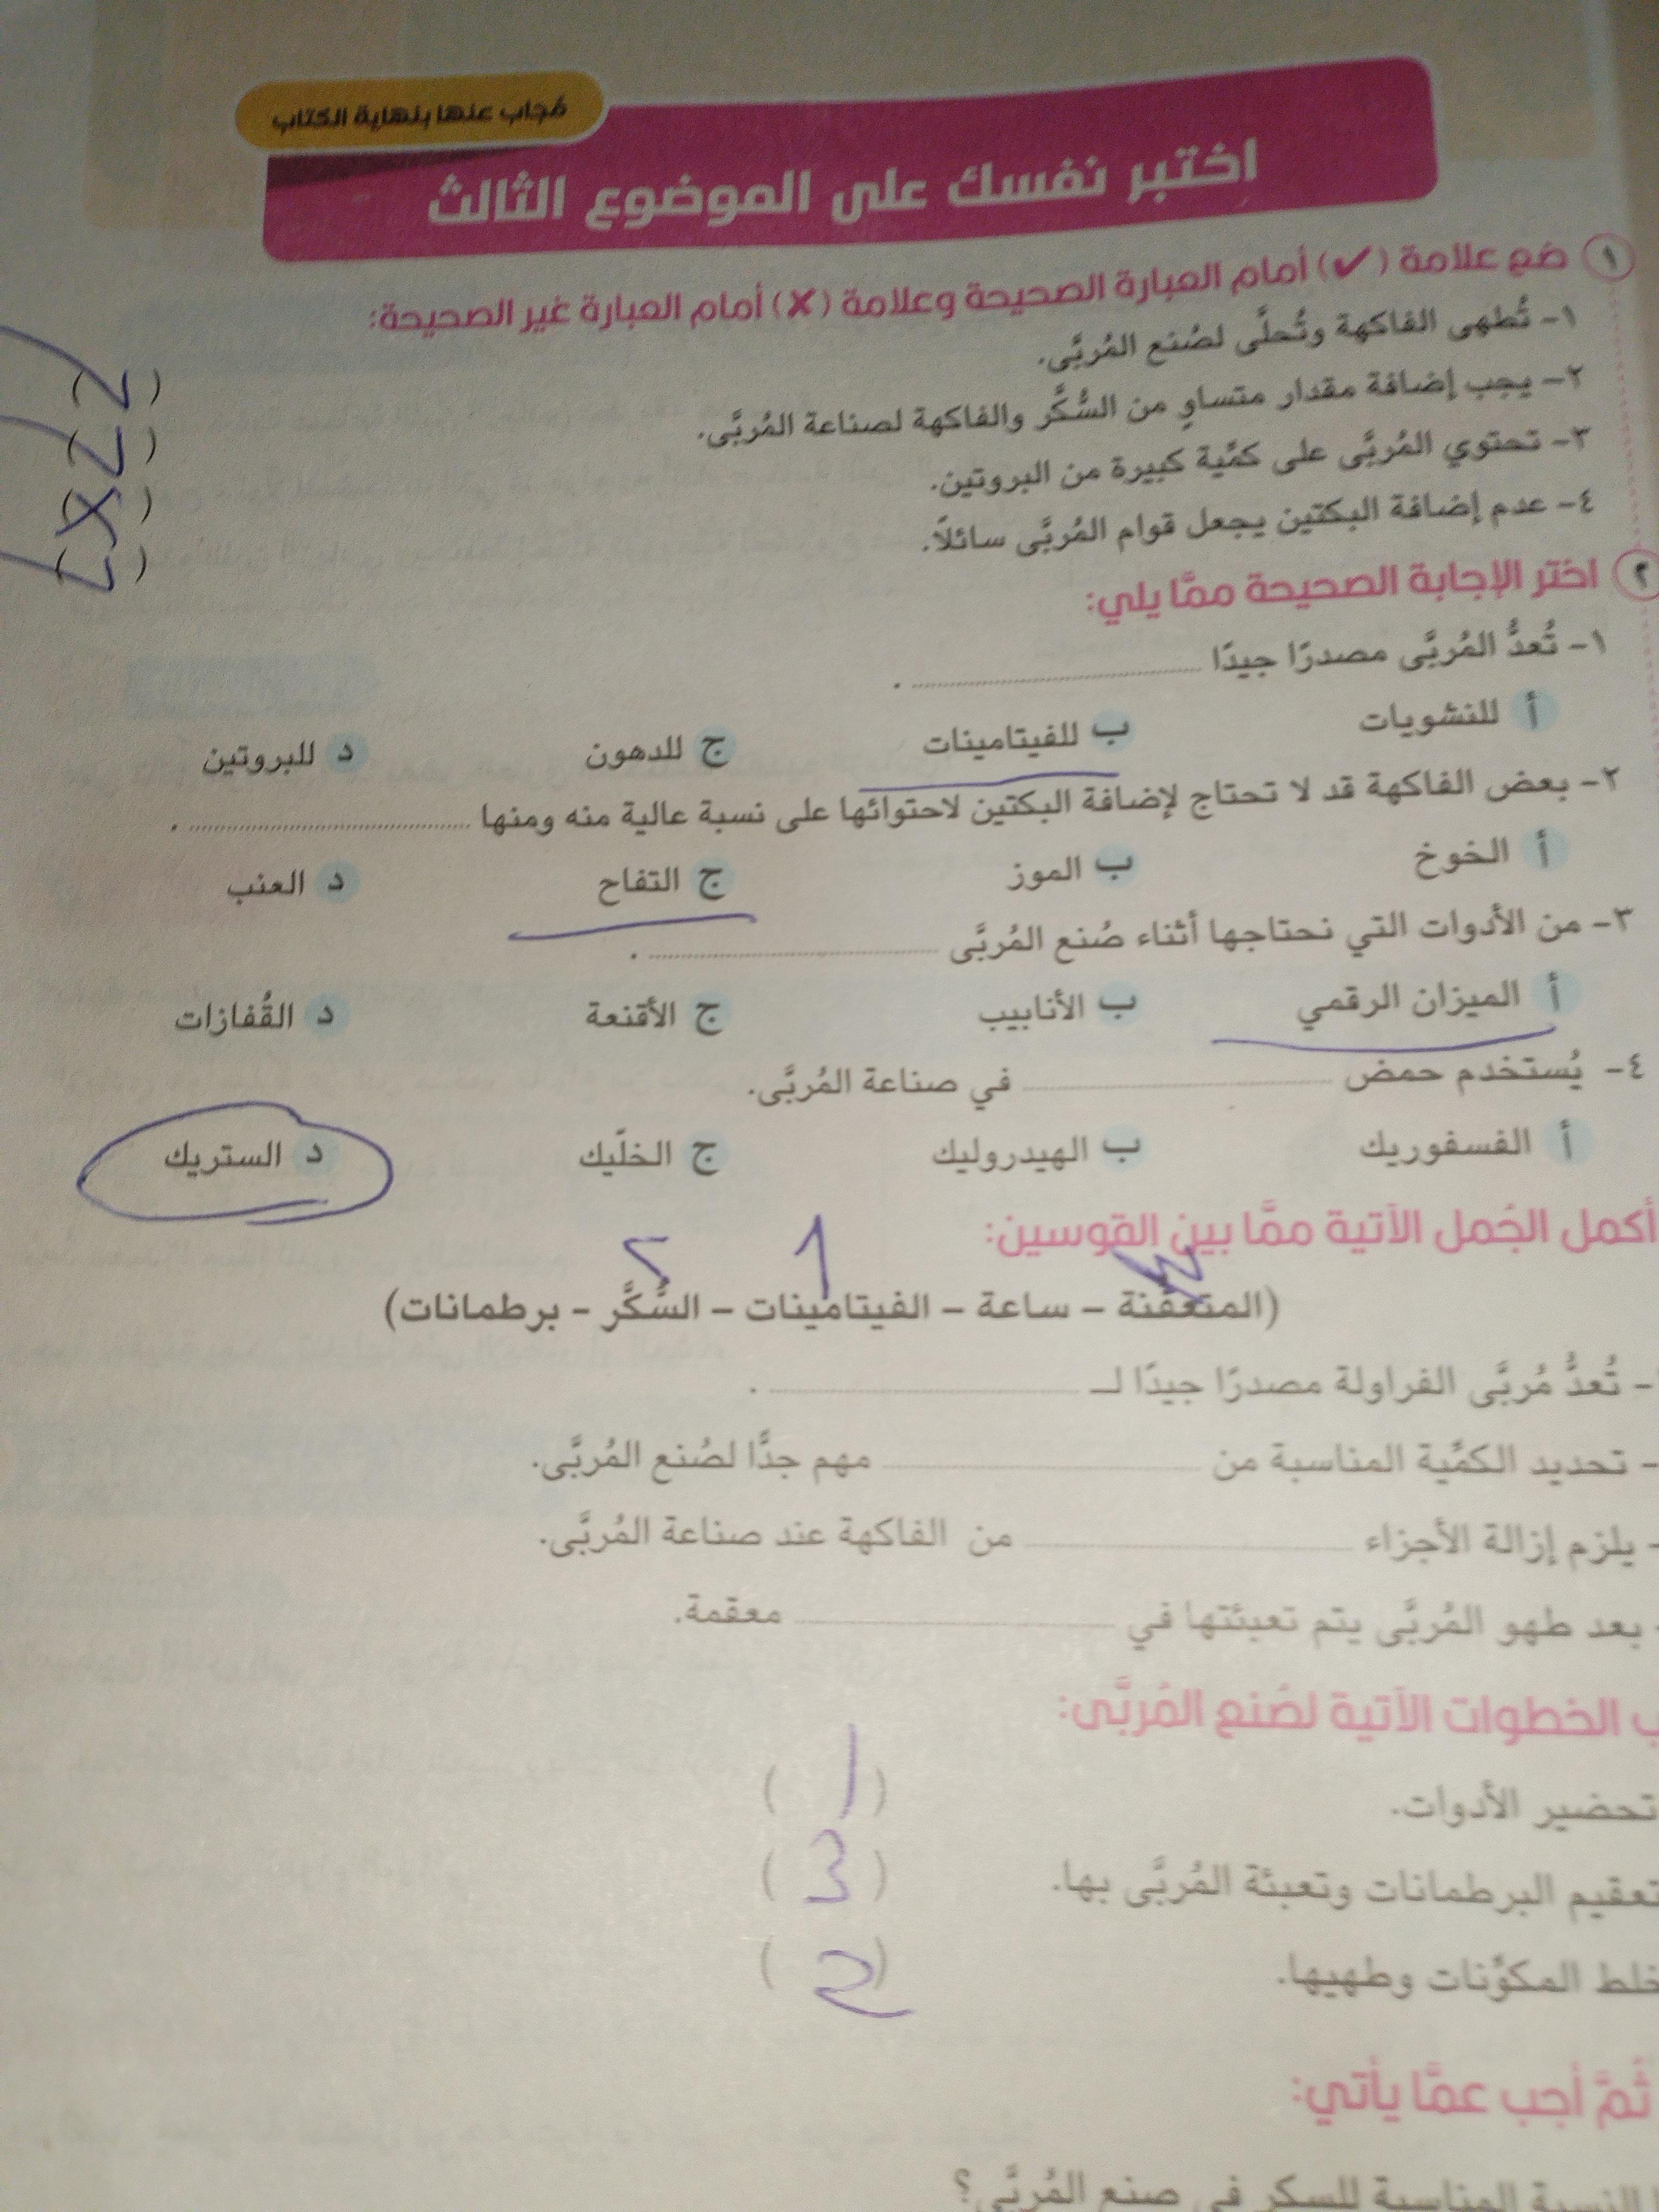 مُجاب عنها بنهاية الكتاب
اختبر نفسك على الموضوع الثالث
١ ضع علامة (✔) أمام العبارة الصحيحة وعلامة (✘) أمام العبارة غير الصحيحة:
١- تُطهى الفاكهة وتُحلَّى لصُنع المُربَّى. ( )
٢- يجب إضافة مقدار متساوٍ من السُّكَّر والفاكهة لصناعة المُربَّى. ( )
٣- تحتوي المُربَّى على كمِّية كبيرة من البروتين. (X)
٤- عدم إضافة البكتين يجعل قوام المُربَّى سائلًا. ( )
٢ اختر الإجابة الصحيحة ممَّا يلي:
١- تُعدُّ المُربَّى مصدرًا جيدًا ............ .
أ للنشويات ب للفيتامينات ج للدهون د للبروتين
٢- بعض الفاكهة قد لا تحتاج لإضافة البكتين لاحتوائها على نسبة عالية منه ومنها ............ .
أ الخوخ ب الموز ج التفاح د العنب
٣- من الأدوات التي نحتاجها أثناء صُنع المُربَّى ............ .
أ الميزان الرقمي ب الأنابيب ج الأقنعة د القُفازات
٤- يُستخدم حمض ............ في صناعة المُربَّى.
أ الفسفوريك ب الهيدروليك ج الخلّيك د الستريك
أكمل الجُمل الآتية ممَّا بين القوسين:
٣ 1 ٢
(المتعفِّنة – ساعة – الفيتامينات – السُّكَّر – برطمانات)
- تُعدُّ مُربَّى الفراولة مصدرًا جيدًا لـ ............ .
- تحديد الكمِّية المناسبة من ............ مهم جدًّا لصُنع المُربَّى.
- يلزم إزالة الأجزاء ............ من الفاكهة عند صناعة المُربَّى.
- بعد طهو المُربَّى يتم تعبئتها في ............ معقمة.
ب الخطوات الآتية لصُنع المُربَّى:
تحضير الأدوات. (1)
تعقيم البرطمانات وتعبئة المُربَّى بها. (3)
خلط المكوِّنات وطهيها. (2)
ثُمَّ أجب عمَّا يأتي:
النسبة المناسبة للسكر في صنع المُربَّى؟